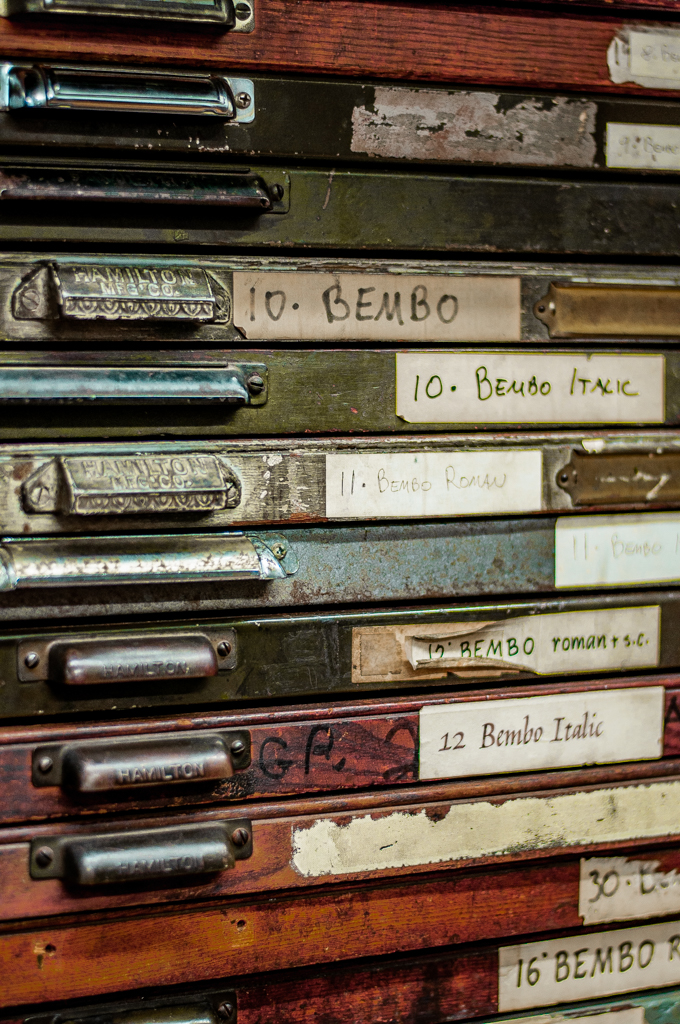 HAMILTON
MFG. CO.
10. BEMBO
10. BEMBO ITALIC
HAMILTON
MFG. CO.
11. BEMBO ROMAN
11. BEMBO
12. BEMBO roman + s.c.
HAMILTON
12 Bembo Italic
GP.
HAMILTON
HAMILTON
30.
16 BEMBO R